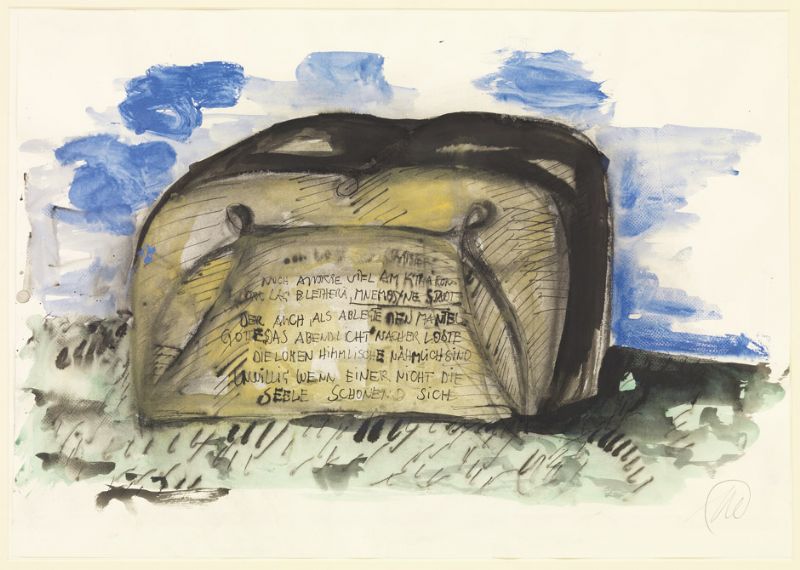 NOCH ANDRE VIEL AM KITHÄRON
LAG MNEMOSYNE STADT
DER AUCH, ALS ABLEGTE DEN MANTEL
GOTT DAS ABENDLICHT NACHER LÖSTE
DIE LOKEN HIMMLISCHE NÄHMLICH SIND
UNWILLIG WENN EINER NICHT DIE
SEELE SCHONEND SICH